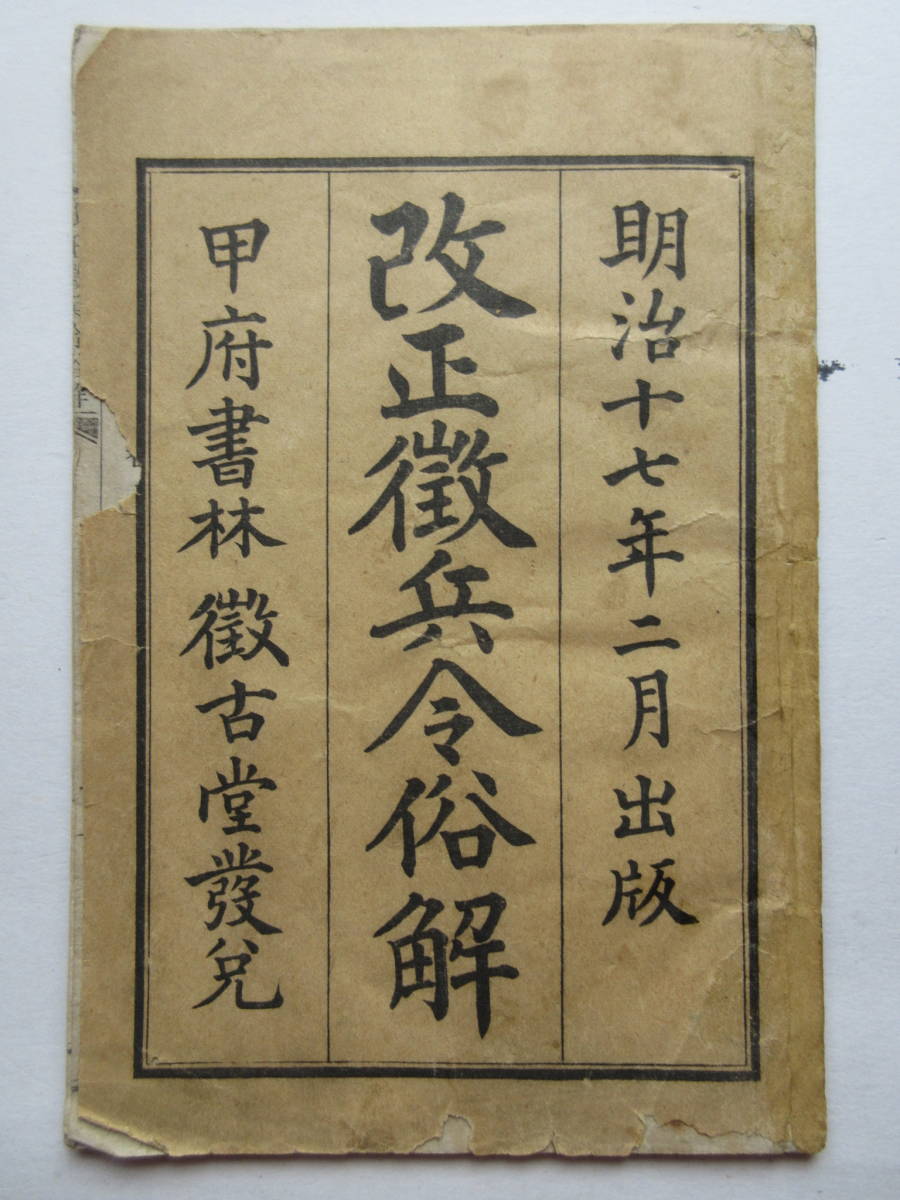 明治十七年二月出版
改正徴兵令俗解
甲府書林 徴古堂發兌